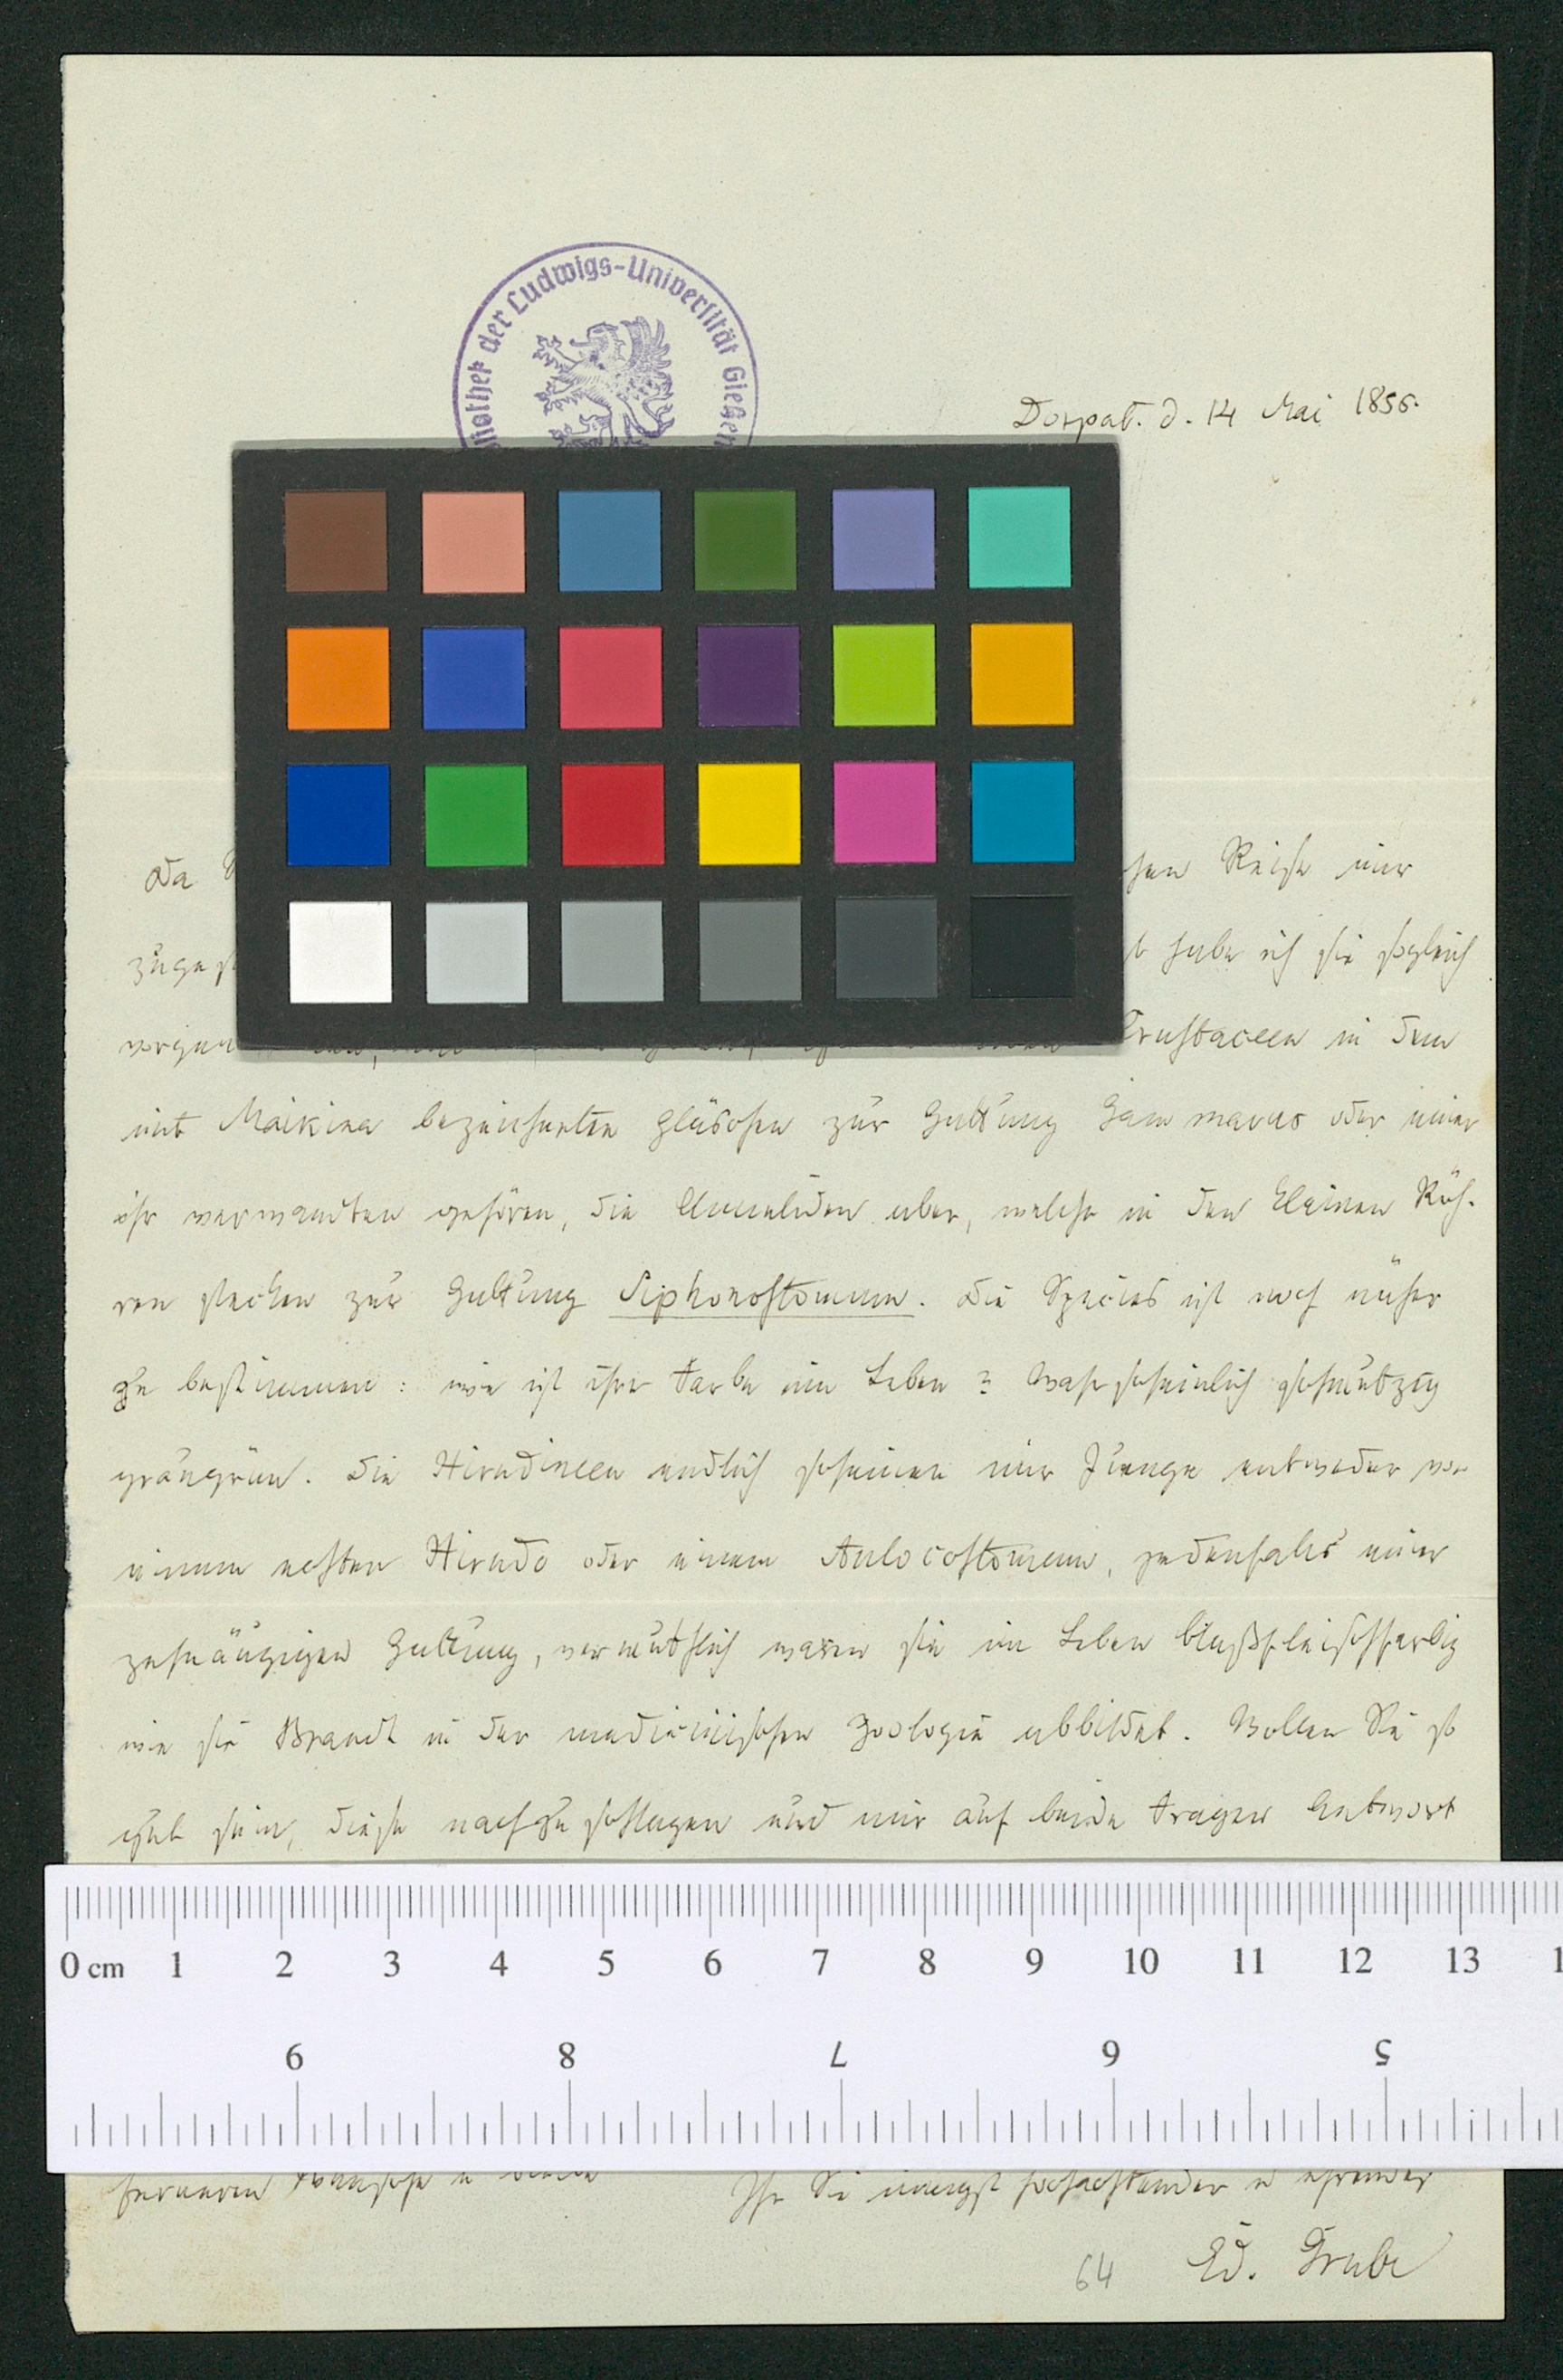 bliothek der Ludwigs-Universität Gießen
Dorpat. d. 14 Mai 1856.
Da
sen Reise mir
habe ich sie sogleich
Crustaceen in dem
mit Maikina bezeichneten Gläschen zur Gattung Gammarus oder einer
ihr verwandten gehören, die Anneliden aber, welche in den kleinen Röh-
ren stecken zur Gattung Siphonostomum. Die Species ist noch näher
zu bestimmen: wie ist ihre Farbe im Leben? Wahrscheinlich schmutzig
graugrün. Die Hirudineen endlich scheinen mir Junge entweder von
einem echten Hirudo oder einem Aulocostomum, jedenfalls einer
zehnäugigen Gattung, vermuthlich waren sie im Leben blaßfleischfarbig
wie sie Brandt in der medicinischen Zoologie abbildet. Wollen Sie so
gut sein, diese nachzuschlagen und mir auf beide Fragen Antwort
0 cm 1 2 3 4 5 6 7 8 9 10 11 12 13 1
9 8 7 6 5
Ihr Sie innigst hochachtender u
64 Ed. Grube